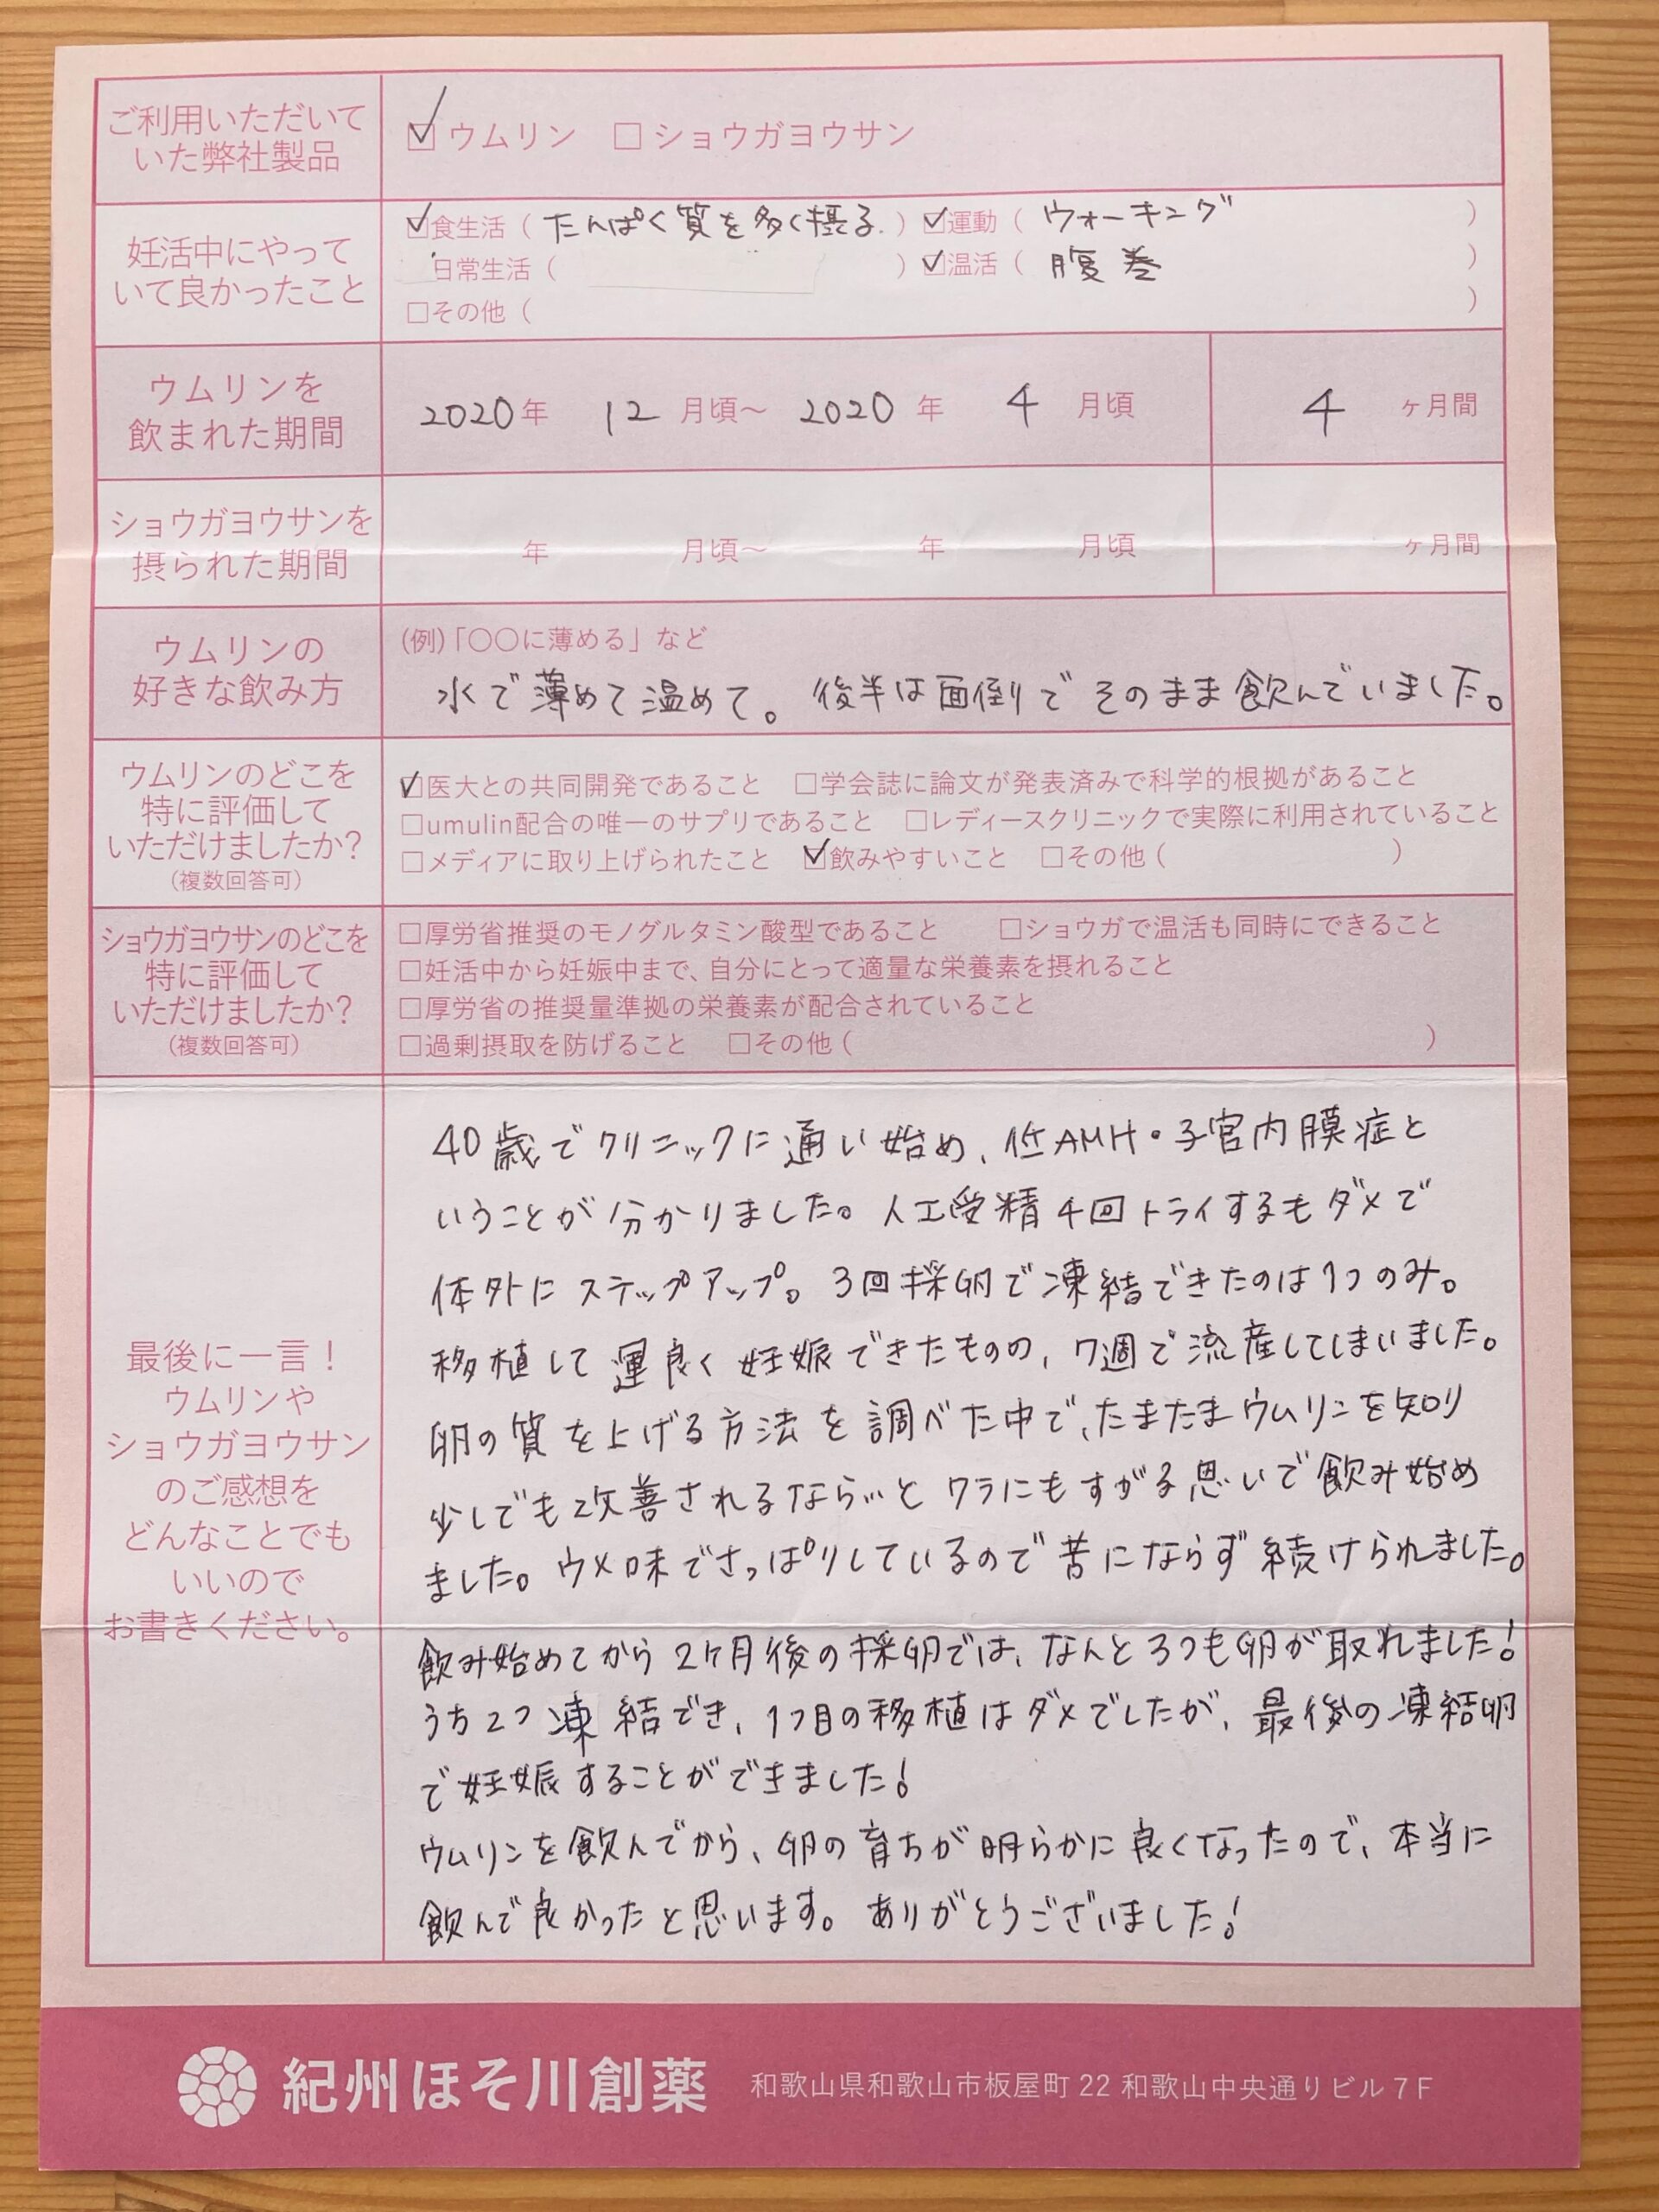 ご利用いただいて
いた弊社製品
☑ウムリン □ショウガヨウサン
妊活中にやって
いて良かったこと
☑食生活（たんぱく質を多く摂る。）☑運動（ウォーキング）
日常生活（ ）☑温活（腹巻）
□その他（ ）
ウムリンを
飲まれた期間
2020年 12月頃〜2020年 4月頃 4ヶ月間
ショウガヨウサンを
摂られた期間
年 月頃〜 年 月頃 ヶ月間
ウムリンの
好きな飲み方
(例)「〇〇に薄める」など
水で薄めて温めて。後半は面倒でそのまま飲んでいました。
ウムリンのどこを
特に評価して
いただけましたか？
（複数回答可）
☑医大との共同開発であること □学会誌に論文が発表済みで科学的根拠があること
□umulin配合の唯一のサプリであること □レディースクリニックで実際に利用されていること
□メディアに取り上げられたこと ☑飲みやすいこと □その他（ ）
ショウガヨウサンのどこを
特に評価して
いただけましたか？
（複数回答可）
□厚労省推奨のモノグルタミン酸型であること □ショウガで温活も同時にできること
□妊活中から妊娠中まで、自分にとって適量な栄養素を摂れること
□厚労省の推奨量準拠の栄養素が配合されていること
□過剰摂取を防げること □その他（ ）
最後に一言！
ウムリンや
ショウガヨウサン
のご感想を
どんなことでも
いいので
お書きください。
40歳でクリニックに通い始め、低AMH・子宮内膜症と
いうことが分かりました。人工受精4回トライするもダメで
体外にステップアップ。3回採卵で凍結できたのは1つのみ。
移植して運良く妊娠できたものの、7週で流産してしまいました。
卵の質を上げる方法を調べた中で、たまたまウムリンを知り
少しでも改善されるなら…とワラにもすがる思いで飲み始め
ました。ウメ味でさっぱりしているので苦にならず続けられました。
飲み始めてから2ヶ月後の採卵では、なんと3つも卵が取れました！
うち2つ凍結でき、1つ目の移植はダメでしたが、最後の凍結卵
で妊娠することができました！
ウムリンを飲んでから、卵の育ちが明らかに良くなったので、本当に
飲んで良かったと思います。ありがとうございました！
紀州ほそ川創薬 和歌山県和歌山市板屋町22 和歌山中央通りビル7F